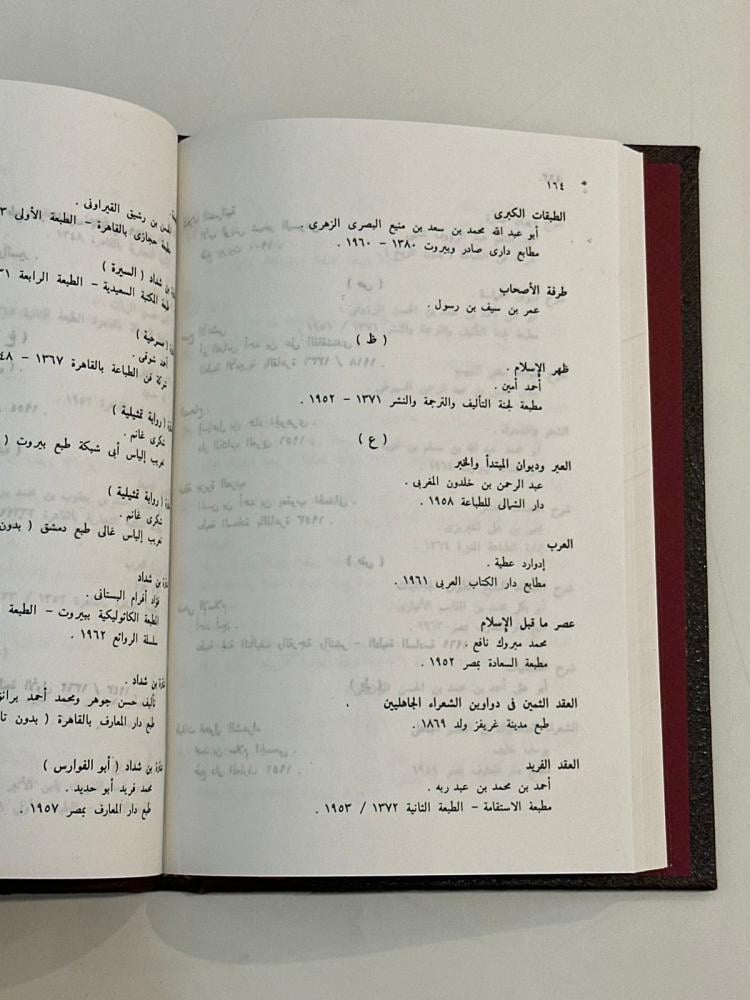 ١٦٤
الطبقات الكبرى
أبو عبد الله محمد بن سعد بن منيع البصرى الزهرى .
مطابع دارى صادر وبيروت ١٣٨٠ – ١٩٦٠ .
طرفة الأصحاب
عمر بن سيف بن رسول .
( ظ )
ظهر الإسلام .
أحمد أمين .
مطبعة لجنة التأليف والترجمة والنشر ١٣٧١ – ١٩٥٢ .
( ع )
العبر وديوان المبتدأ والخبر
عبد الرحمن بن خلدون المغربى .
دار الشمالى للطباعة ١٩٥٨ .
العرب
إدوارد عطية .
مطابع دار الكتاب العربى ١٩٦١ .
عصر ما قبل الإسلام
محمد مبروك نافع .
مطبعة السعادة بمصر ١٩٥٢ .
العقد الثمين فى دواوين الشعراء الجاهليين .
طبع مدينة غريفز ولد ١٨٦٩ .
العقد الفريد
أحمد بن محمد بن عبد ربه .
مطبعة الاستقامة – الطبعة الثانية ١٣٧٢ / ١٩٥٣ .
بن رشيق القيراونى .
حجازى بالقاهرة – الطبعة الأولى
بن شداد ( السيرة )
المكتبة السعيدية – الطبعة الرابعة
( مسرحية )
أحمد شوقى .
شركة فن الطباعة بالقاهرة ١٣٦٧ –
( رواية تمثيلية )
شكرى غانم .
تعريب إلياس أبى شبكة طبع بيروت (
( رواية تمثيلية )
شكرى غانم .
تعريب إلياس غالى طبع دمشق ( بدون
بن شداد
فؤاد أفرام البستانى .
المطبعة الكاثوليكية ببيروت – الطبعة
سلسلة الروائع ١٩٦٢ .
بن شداد .
تأليف حسن جوهر ومحمد أحمد
طبع دار المعارف بالقاهرة ( بدون
بن شداد ( أبو الفوارس )
محمد فريد أبو حديد .
طبع دار المعارف بمصر ١٩٥٧ .